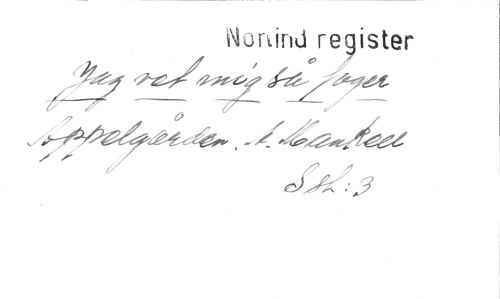 Norlind register
Jag vet mig så fager
Appelgården. A. Mankell
S sh: 3